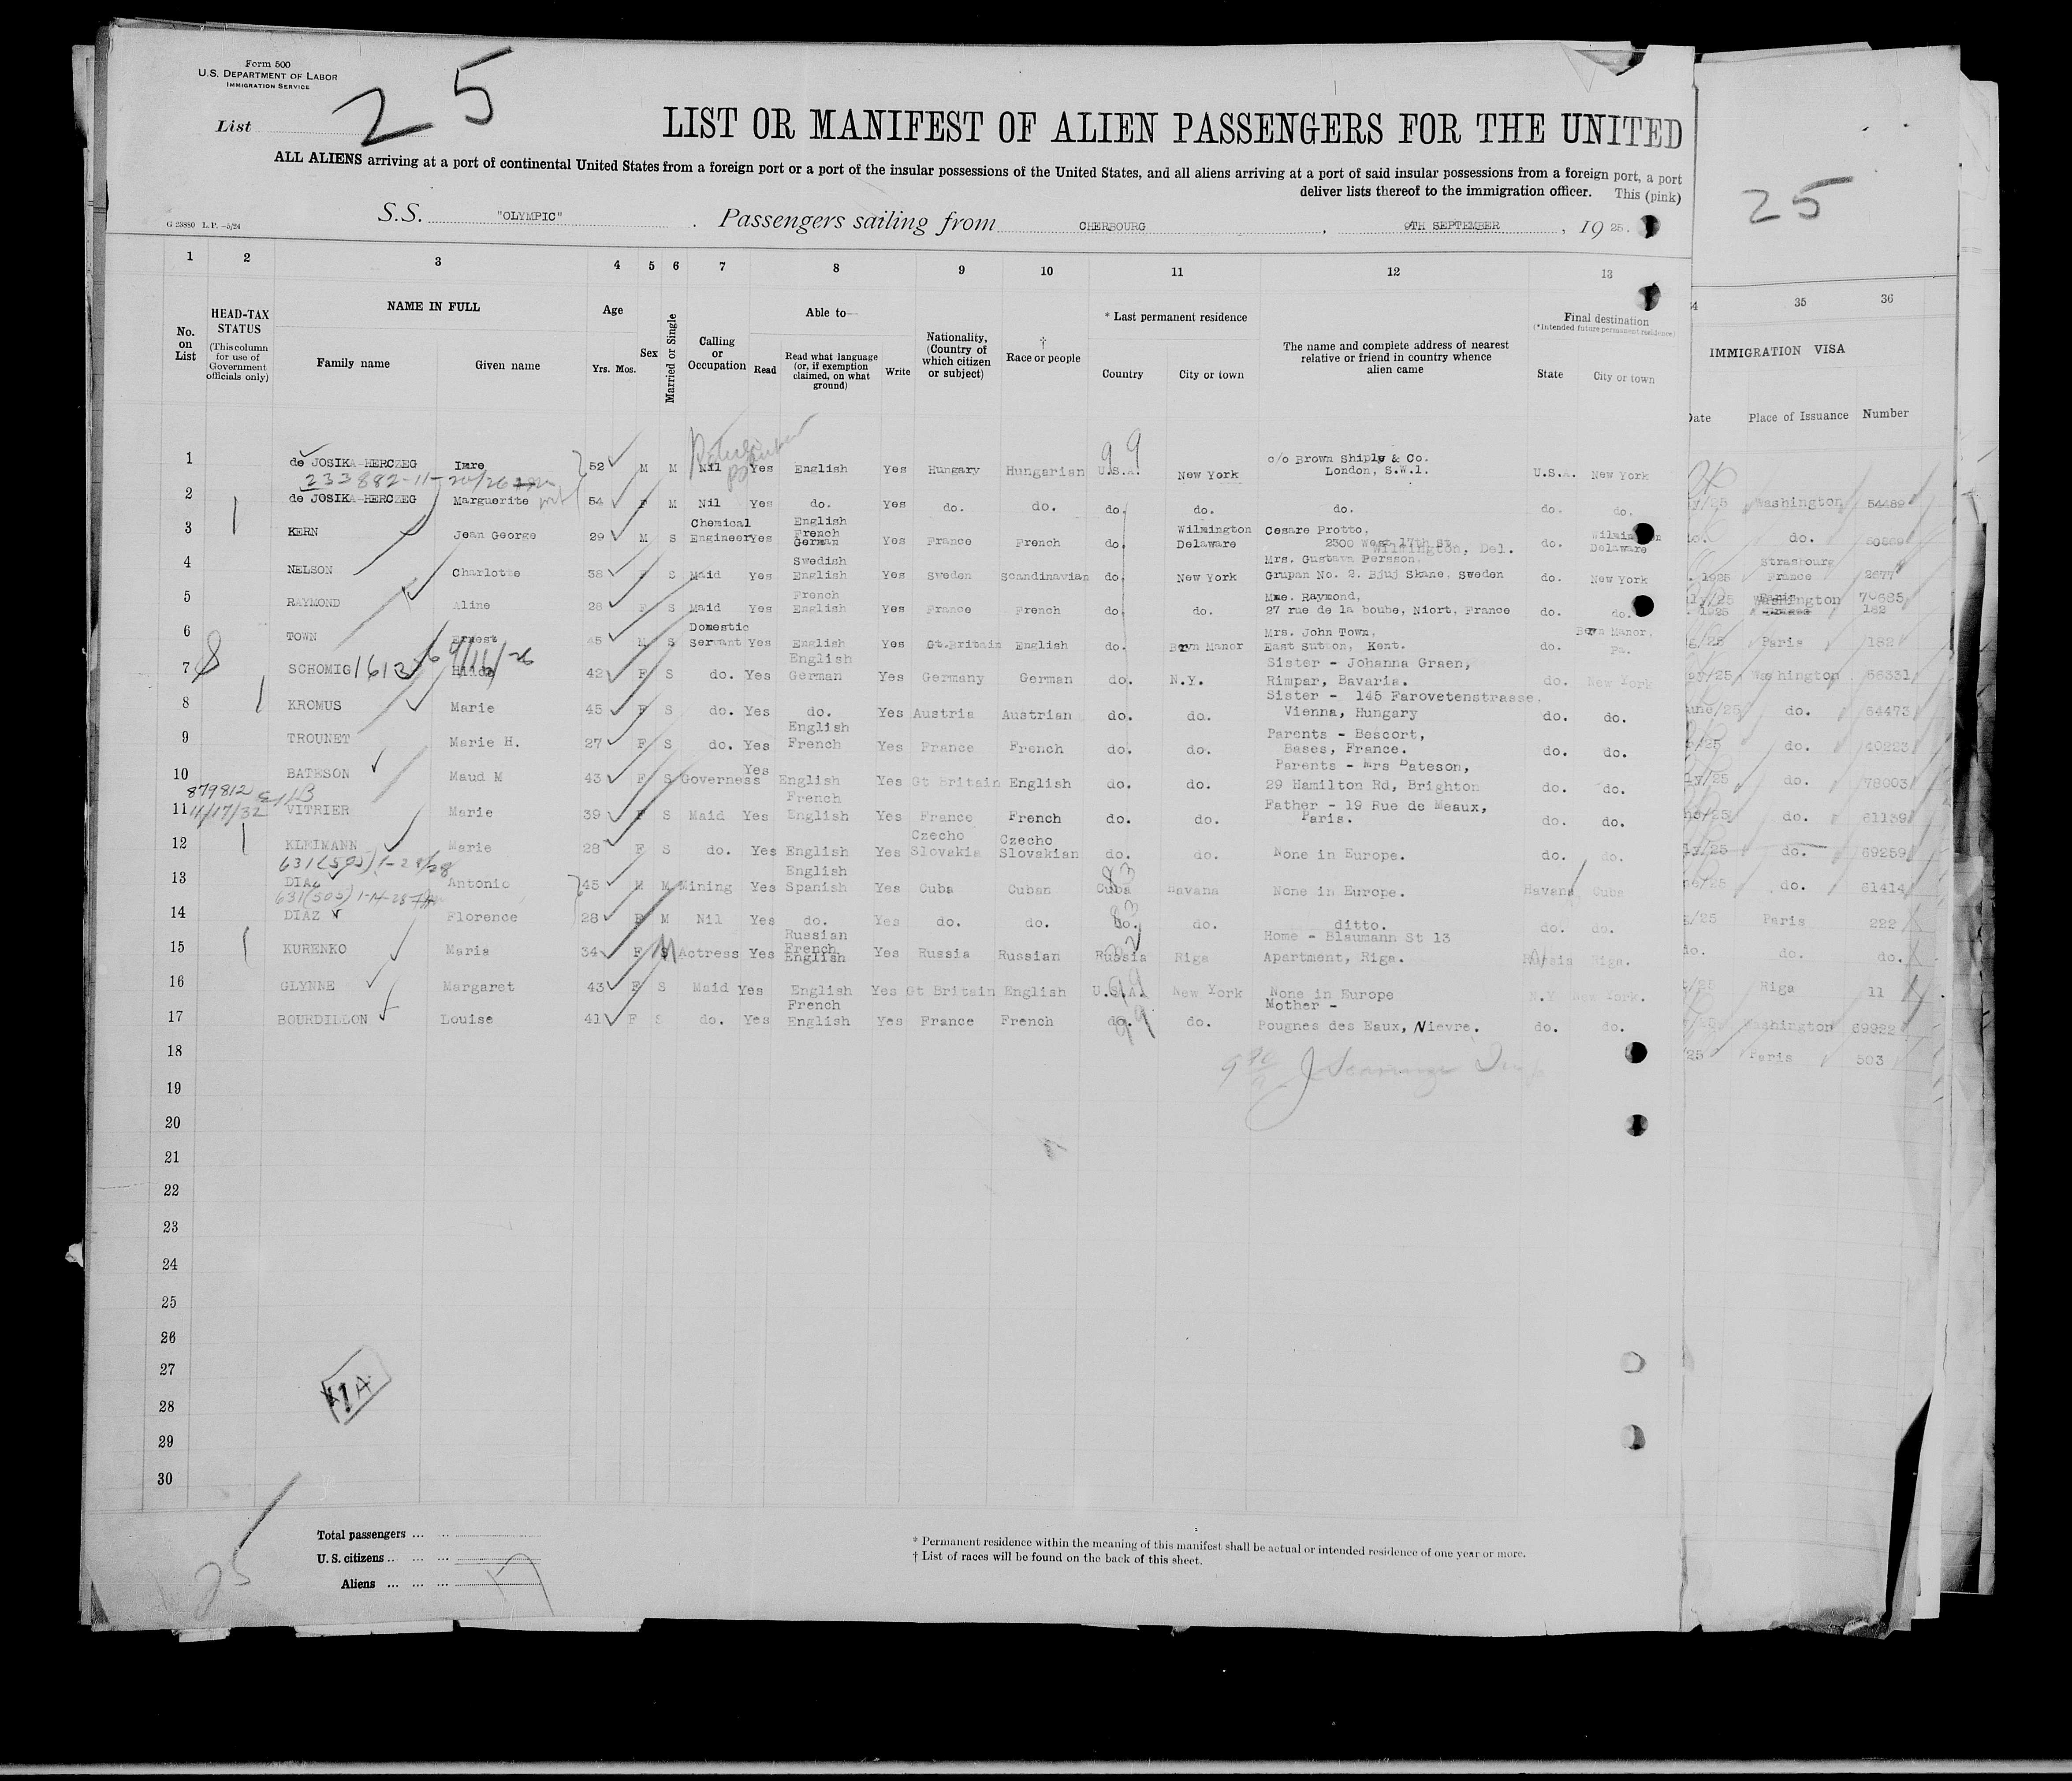 Form 500
U.S. DEPARTMENT OF LABOR
IMMIGRATION SERVICE
List 25
LIST OR MANIFEST OF ALIEN PASSENGERS FOR THE UNITED
ALL ALIENS arriving at a port of continental United States from a foreign port or a port of the insular possessions of the United States, and all aliens arriving at a port of said insular possessions from a foreign port, a port
deliver lists thereof to the immigration officer. This (pink)
25
G 23880 L.P. -5/24
S.S. "OLYMPIC" Passengers sailing from CHERBOURG, 9TH SEPTEMBER, 1925.
1 2 3 4 5 6 7 8 9 10 11 12 13 35 36
No. on List
HEAD-TAX STATUS
(This column for use of Government officials only)
NAME IN FULL
Family name Given name
Age
Yrs. Mos.
Sex
Married or Single
Calling or Occupation
Able to—
Read
Read what language (or, if exemption claimed, on what ground)
Write
Nationality, (Country of which citizen or subject)
† Race or people
* Last permanent residence
Country City or town
The name and complete address of nearest relative or friend in country whence alien came
Final destination
(*Intended future permanent residence)
State City or town
IMMIGRATION VISA
Date Place of Issuance Number
1 de JOSIKA-HERCZEG Imre 52 M M Nil Yes English Yes Hungary Hungarian U.S.A. New York c/o Brown Shiply & Co. London, S.W.1. U.S.A. New York
99
233882-11-20/26
2 de JOSIKA-HERCZEG Marguerite 54 F M Nil Yes do. Yes do. do. do. do. do. do. do.
y/25 Washington 54489
3 KERN Jean George 29 M S Chemical Engineer Yes English French German Yes France French do. Wilmington Delaware Cesare Protto, 2300 West 17th St Wilmington, Del. do. Wilmington Delaware
do. do.
4 NELSON Charlotte 38 F S Maid Yes Swedish English Yes Sweden Scandinavian do. New York Mrs. Gustava Persson, Grupan No. 2. Bjuj Skane, Sweden do. New York
1925 Strasbourg France 2677
5 RAYMOND Aline 28 F S Maid Yes French English Yes France French do. do. Mme. Raymond, 27 rue de la boube, Niort, France do. do.
ly/25 Washington 70685
1925 182
6 TOWN Ernest 45 M S Domestic servant Yes English Yes Gt.Britain English do. Bryn Manor Mrs. John Town, East Sutton, Kent. do. Bryn Manor, Pa.
g/25 Paris 182
7 SCHOMIG 42 F S do. Yes English German Yes Germany German do. N.Y. Sister - Johanna Graen, Rimpar, Bavaria. do. New York
/25 Washington 56331
8 KROMUS Marie 45 F S do. Yes do. Yes Austria Austrian do. do. Sister - 145 Farovetenstrasse, Vienna, Hungary do. do.
une/25 do. 64473
9 TROUNET Marie H. 27 F S do. Yes English French Yes France French do. do. Parents - Bescort, Bases, France. do. do.
/25 do. 40223
10 BATESON Maud M 43 F S Governess Yes English Yes Gt Britain English do. do. Parents - Mrs Bateson, 29 Hamilton Rd, Brighton do. do.
ly/25 do. 78003
879812
11/17/32
11 VITRIER Marie 39 F S Maid Yes French English Yes France French do. do. Father - 19 Rue de Meaux, Paris. do. do.
ne/25 do. 61139
12 KLEIMANN Marie 28 F S do. Yes English Yes Czecho Slovakia Czecho Slovakian do. do. None in Europe. do. do.
ly/25 do. 69259
631(505)
13 DIAZ Antonio 45 M M Mining Yes English Spanish Yes Cuba Cuban Cuba Havana None in Europe. Havana Cuba
ne/25 do. 61414
83
631(505) 1-14-28
14 DIAZ Florence 28 F M Nil Yes do. Yes do. do. do. do. ditto. do. do.
/25 Paris 222
83
15 KURENKO Maria 34 F S M Actress Yes Russian French English Yes Russia Russian Russia Riga Home - Blaumann St 13 Apartment, Riga. Russia Riga.
do. do. do.
16 GLYNNE Margaret 43 F S Maid Yes English Yes Gt Britain English U.S.A. New York None in Europe N.Y New York.
/25 Riga 11
99
17 BOURDILLON Louise 41 F S do. Yes French English Yes France French do. do. Mother - Pougnes des Eaux, Nievre. do. do.
Washington 69922
99
18
25 Paris 503
19
20
21
22
23
24
25
26
27
28
29
30
Total passengers ... ...
U.S. citizens ... ... ...
Aliens ... ... ... 17
25
* Permanent residence within the meaning of this manifest shall be actual or intended residence of one year or more.
† List of races will be found on the back of this sheet.